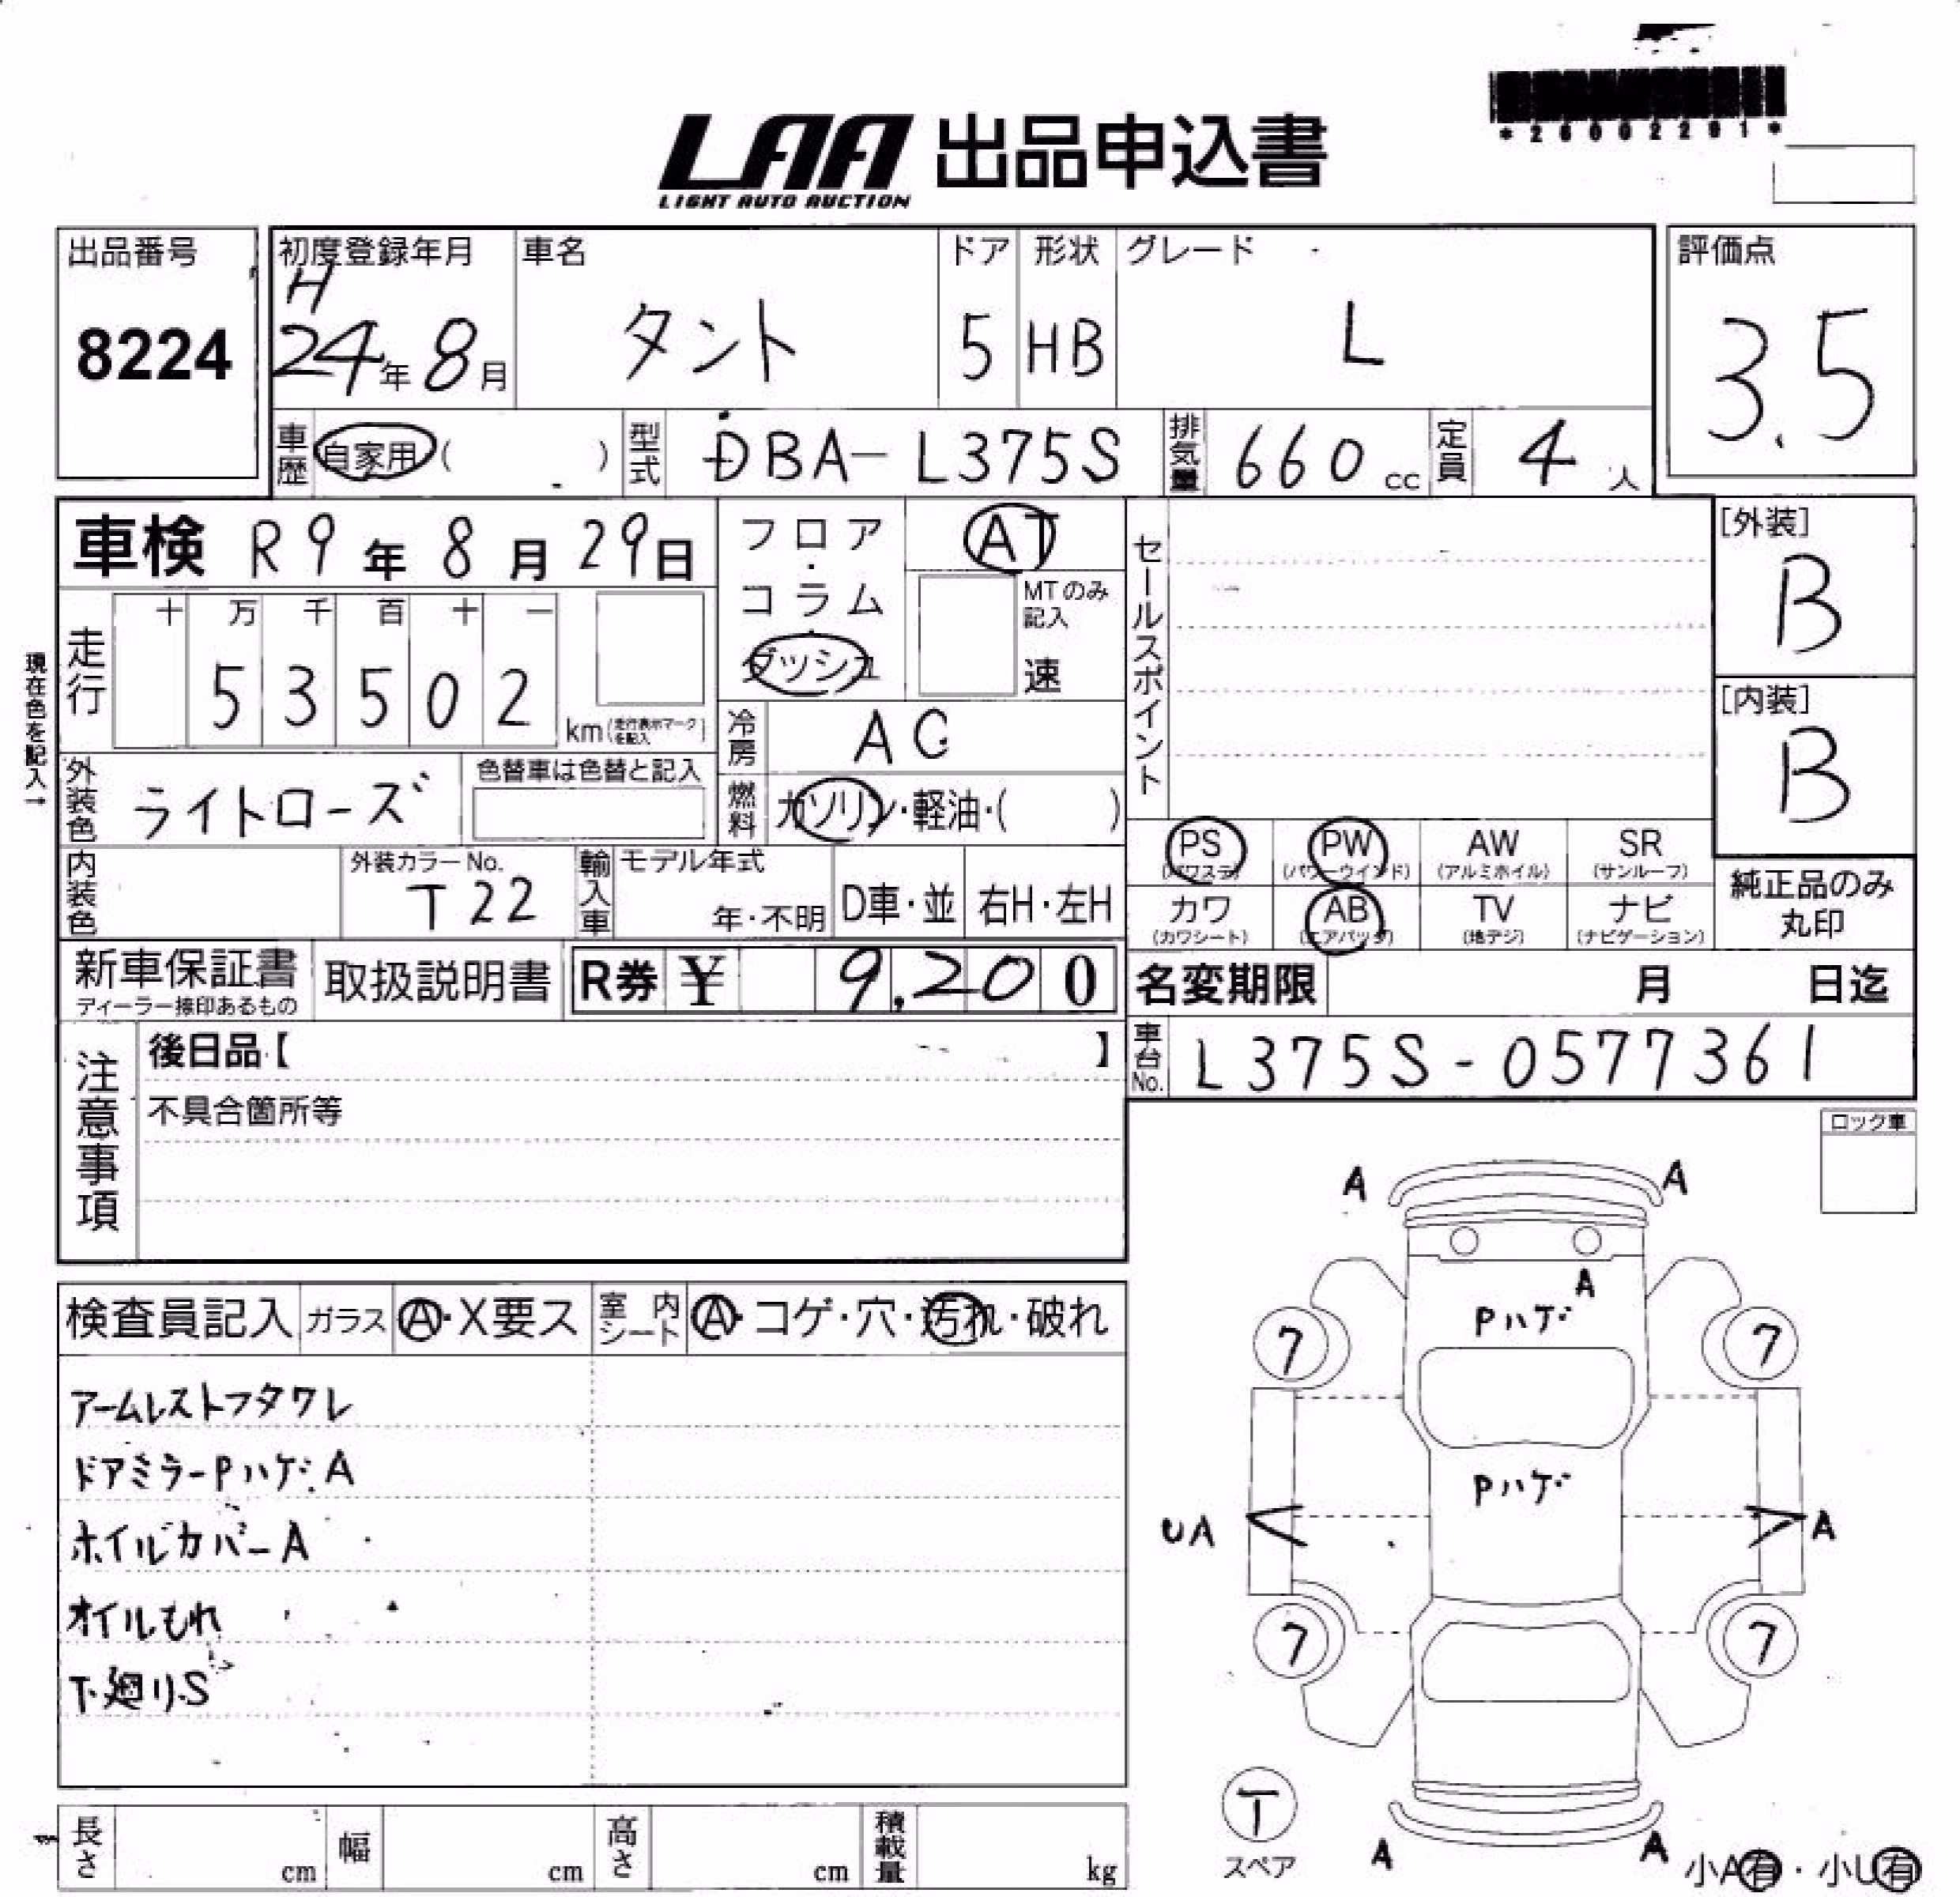 *26002291*
LAA 出品申込書
LIGHT AUTO AUCTION
出品番号
8224
初度登録年月
H
24年8月
車名
タント
ドア
5
形状
HB
グレード
L
評価点
3.5
車歴 自家用( )
型式 DBA-L375S
排気量 660cc
定員 4人
車検 R9年8月29日
フロア・コラム・ダッシュ
AT
MTのみ記入
速
セールスポイント
[外装]
B
[内装]
B
現在色を記入→
走行
十 万 千 百 十 一
5 3 5 0 2
km(走行表示マークを記入)
冷房 AC
外装色 ライトローズ
色替車は色替と記入
燃料 ガソリン・軽油・( )
PS (パワステ)
PW (パワーウインド)
AW (アルミホイル)
SR (サンルーフ)
カワ (カワシート)
AB (エアバッグ)
TV (地デジ)
ナビ (ナビゲーション)
純正品のみ
丸印
内装色
外装カラーNo.
T22
輸入車
モデル年式
年・不明
D車・並
右H・左H
新車保証書
ディーラー捺印あるもの
取扱説明書
R券 ¥ 9,200
名変期限 月 日迄
車台No. L375S-0577361
注意事項
後日品【 】
不具合箇所等
ロック車
検査員記入
ガラス A・X要ス
室内シート A・コゲ・穴・汚れ・破れ
アームレストフタワレ
ドアミラーPハゲ.A
ホイルカバーA
オイルもれ
下廻り.S
A A
A
Pハゲ
7 7
Pハゲ
UA A
7 7
T
スペア
A A
小A有・小U有
長さ cm
幅 cm
高さ cm
積載量 kg